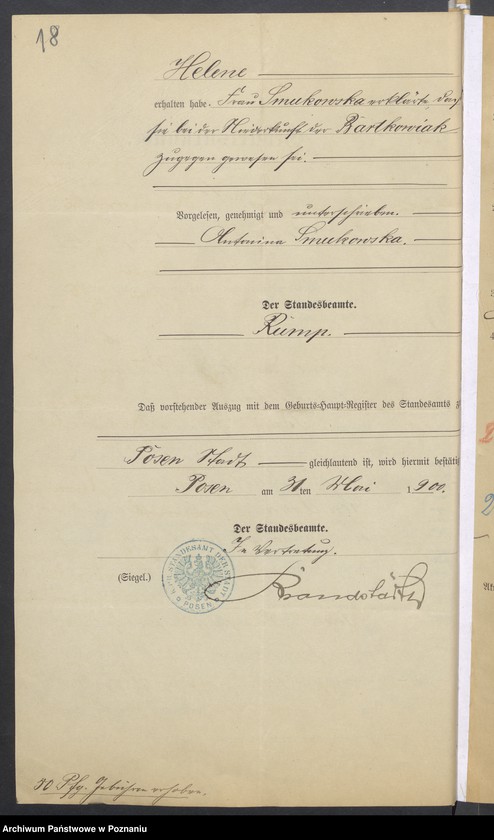 18
Helene
erhalten habe. Frau Smukowska erklärte, daß
sie bei der Niederkunft der Bartkowiak
zugegen gewesen sei.
Vorgelesen, genehmigt und unterschrieben.
Antonina Smukowska.
Der Standesbeamte.
Rump.
Daß vorstehender Auszug mit dem Geburts-Haupt-Register des Standesamts
Posen Stadt gleichlautend ist, wird hiermit bestätig
Posen am 31ten Mai 900.
Der Standesbeamte.
In Vertretung.
(Siegel.)
STANDESAMT DER STADT
POSEN
Brandstätter
30 Pfg. Gebühren erhoben.
Archiwum Państwowe w Poznaniu